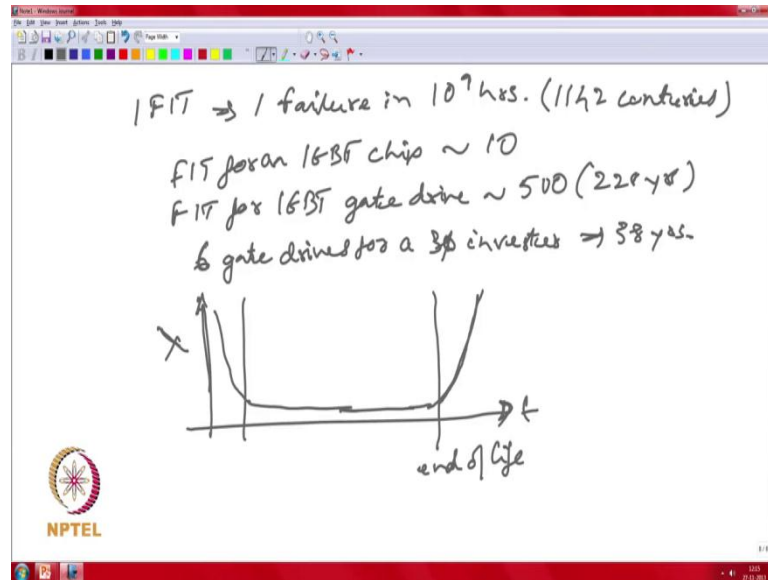 Note1 - Windows Journal
File Edit View Insert Actions Tools Help
Page Width
B I
1 FIT ⇒ 1 failure in 10⁹ hrs. (1142 centuries)
FIT for an IGBT chip ~ 10
FIT for IGBT gate drive ~ 500 (228 yrs)
6 gate drives for a 3ϕ inverter ⇒ 38 yrs.
λ
t
end of life
NPTEL
12:15